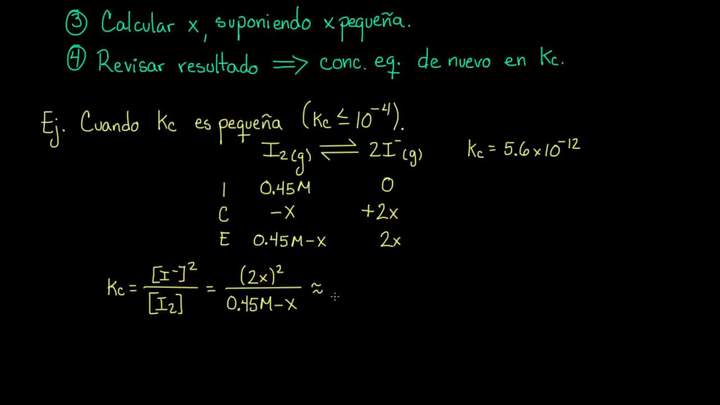 ③ Calcular x, suponiendo x pequeña.
④ Revisar resultado ⟹ conc. eq. de nuevo en Kc.
Ej. Cuando Kc es pequeña (Kc ≤ 10⁻⁴).
I₂(g) ⇌ 2I⁻(g) Kc = 5.6 x 10⁻¹²
I 0.45M 0
C -x +2x
E 0.45M-x 2x
Kc = [I⁻]²/[I₂] = (2x)²/0.45M-x ≈